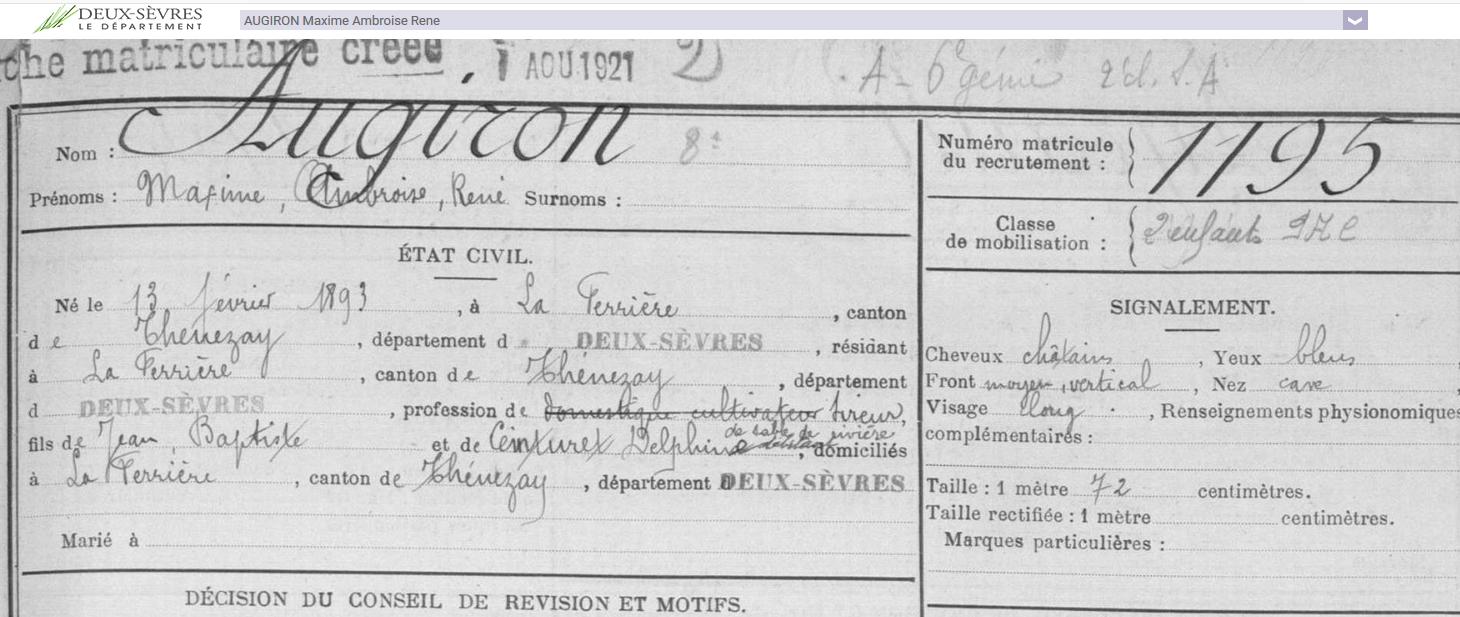 DEUX-SÈVRES
LE DÉPARTEMENT
AUGIRON Maxime Ambroise Rene
che matriculaire creée 1 AOU 1921 2)
A- 6 génie 2 cl. S.A
Nom : Augiron 8e
Prénoms : Maxime, Ambroise, René Surnoms :
Numéro matricule
du recrutement : 1195
Classe
de mobilisation : 2 enfants
ÉTAT CIVIL.
Né le 13 février 1893, à La Ferrière, canton
de Thénezay, département d DEUX-SÈVRES, résidant
à La Ferrière, canton de Thénezay, département
d DEUX-SÈVRES, profession de domestique cultivateur tireur,
de sable de rivière
fils de Jean Baptiste et de Ceinturet Delphine, domiciliés
à La Ferrière, canton de Thénezay, département DEUX-SÈVRES
Marié à
DÉCISION DU CONSEIL DE REVISION ET MOTIFS.
SIGNALEMENT.
Cheveux châtains, Yeux bleus,
Front moyen, vertical, Nez cave
Visage long, Renseignements physionomiques
complémentaires :
Taille : 1 mètre 72 centimètres.
Taille rectifiée : 1 mètre centimètres.
Marques particulières :